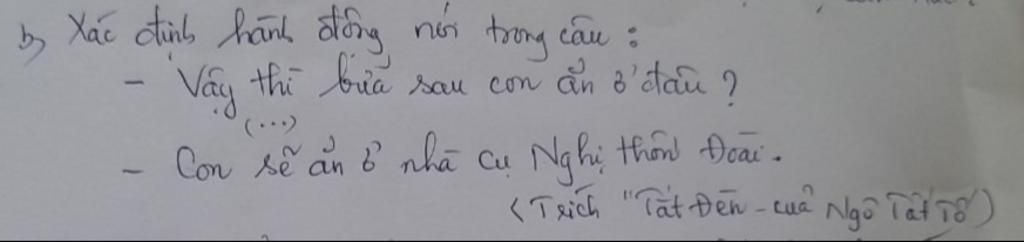 b) Xác định hành động nói trong câu :
- Vậy thì bữa sau con ăn ở đâu ?
(...)
- Con sẽ ăn ở nhà cụ Nghị thôn Đoài.
(Trích "Tắt Đèn - của Ngô Tất Tố)